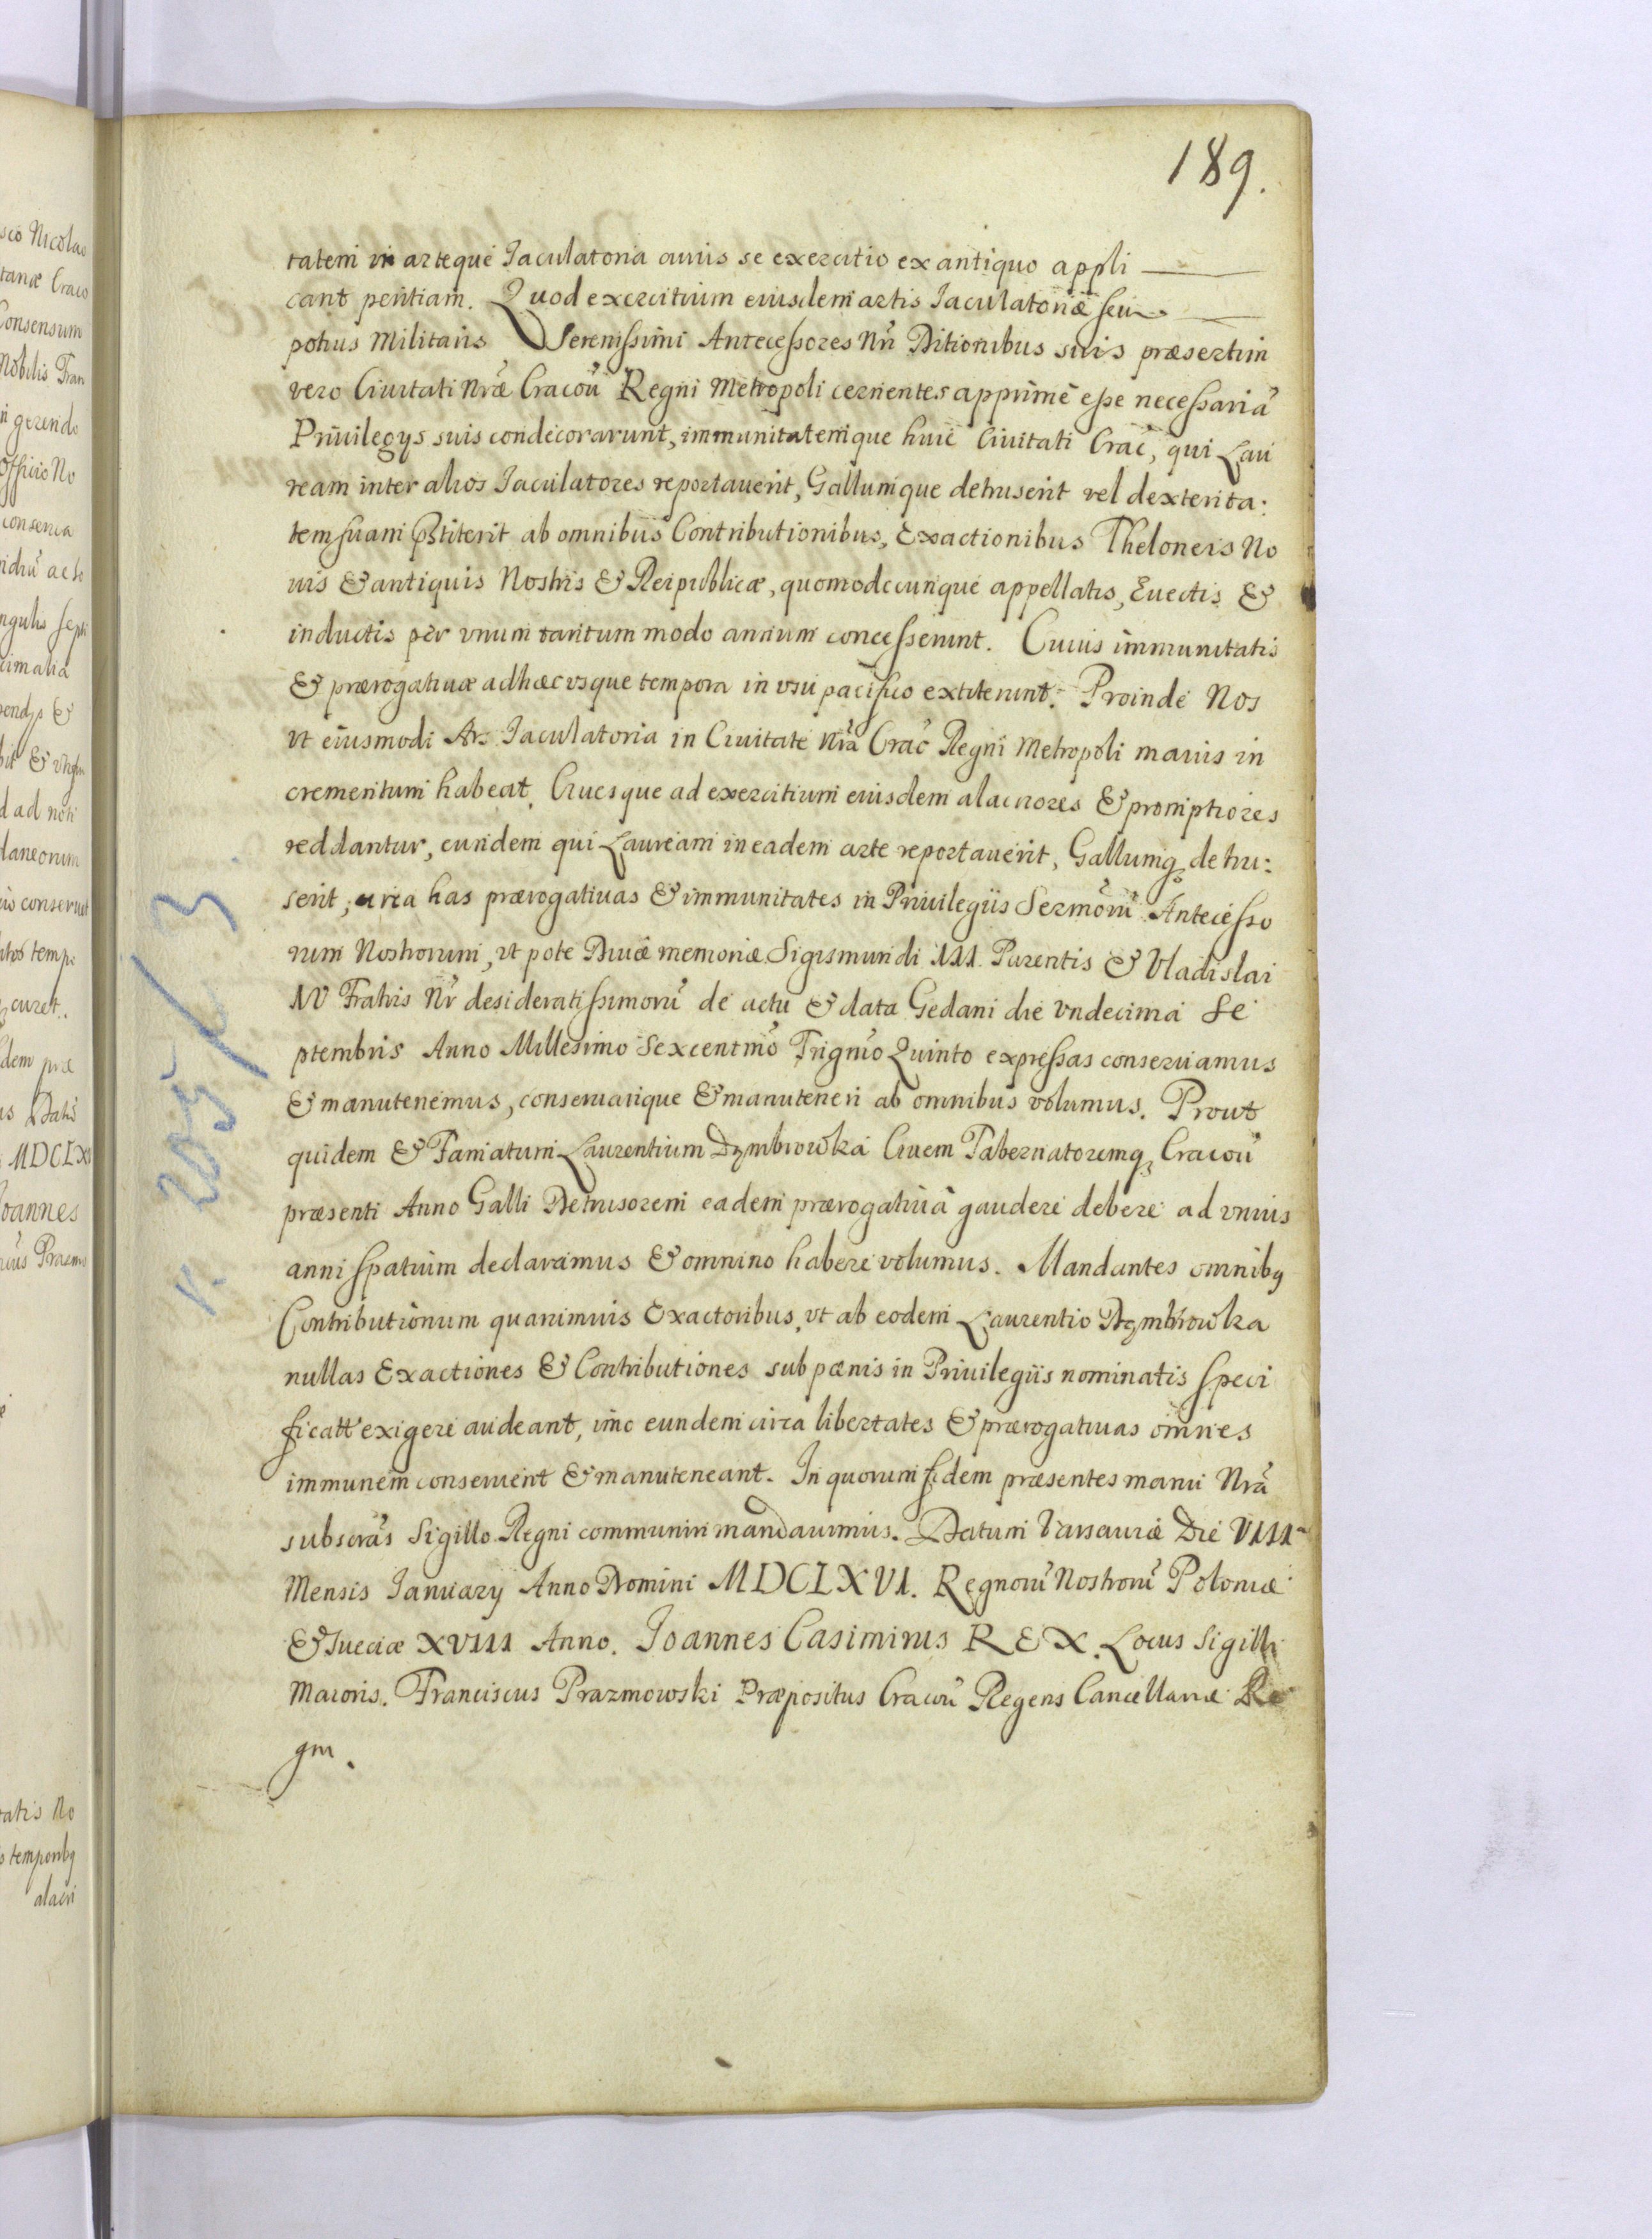 189.
tatem in arteque Iaculatoria auius se exercitio ex antiquo appli
cant peritiam. Quod exercitium eiusdem artis Iaculatoriæ seu
potius Militaris Serenissimi Antecessores Nrī Ditionibus suis præsertim
vero Ciuitati Nræ Cracoū Regni Metropoli cernentes apprime esse necessariā
Priuilegys suis condecorarunt, immunitatemque huic Ciuitati Crac, qui Lau
ream inter alios Iaculatores reportauerit, Gallumque detruserit vel dexterita:
tem suam pstiterit ab omnibus Contributionibus, Exactionibus Theloneis No
uis & antiquis Nostris & Reipublicæ, quomodocunque appellatis, Euectis &
inductis per vnum tantum modo annum concesserunt. Cuius immunitatis
& prærogatiuæ adhæc vsque tempora in vsu pacifico extiterunt. Proinde Nos
vt eiusmodi Ars Iaculatoria in Ciuitate Nrā Crac Regni Metropoli maius in
crementum habeat, Ciuesque ad exercitium eiusdem alacriores & promptiores
reddantur, eundem qui Lauream in eadem arte reportauerit, Gallumq detru:
serit, circa has prærogatiuas & immunitates in Priuilegiis Sermorū Antecesso
rum Nostrorum, vt pote Diuæ memoriæ Sigismundi III. Parentis & Vladislai
IV Fratris Nr desideratissimorū de actu & data Gedani die vndecima Se
ptembris Anno Millesimo Sexcentmo Trigmo Quinto expressas conseruamus
& manutenemus, conseruarique & manuteneri ab omnibus volumus. Prout
quidem & Famatum Laurentium Dzmbrowka Ciuem Tabernatoremq Cracoū
præsenti Anno Galli Detrusorem eadem prærogatiuā gaudere debere ad vnius
anni spatium declaramus & omnino habere volumus. Mandantes omnibq
Contributionum quarumuis Exactoribus, vt ab eodem Laurentio Dzmbrowka
nullas Exactiones & Contributiones sub pœnis in Priuilegiis nominatis speci
ficatt exigere audeant, imo eundem circa libertates & prærogatiuas omnes
immunem conseruent & manuteneant. In quorum fidem præsentes manu Nrā
subscras Sigillo Regni communiri mandauimus. Datum Varsauiæ Die VIII
Mensis Ianuary Anno Domini MDCLXVI. Regnorū Nostrorū Poloniæ
& Sueciæ XVIII Anno. Ioannes Casimirus REX. Locus Sigilli
Maioris. Franciscus Prazmowski Præpositus Cracoū Regens Cancellariæ Re
gni.
v. 205/3.